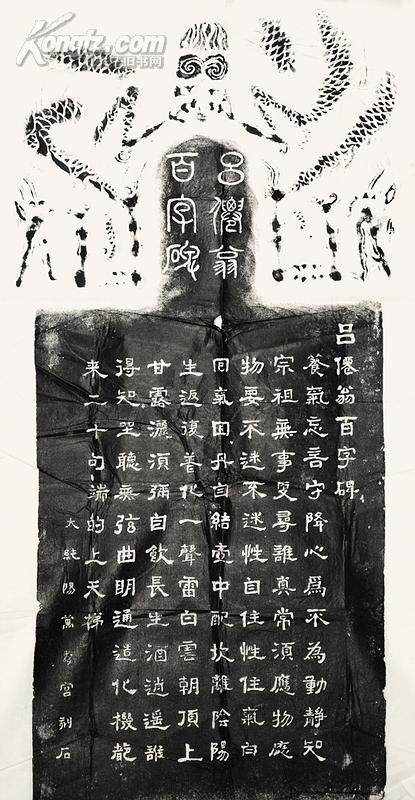 Kongfz.com
旧书网
呂僊翁
百字碑
呂僊翁百字碑
養氣忘言守降心爲不為動靜知
宗祖無事更尋誰真常須應物應
物要不迷不迷性自住性住氣自
回氣回丹自結壺中配坎離陰陽
生返復普化一聲雷白雲朝頂上
甘露灑須彌自飲長生酒逍遥誰
得知坐聽無弦曲明通造化機都
来二十句端的上天梯
大純陽萬壽宮刻石